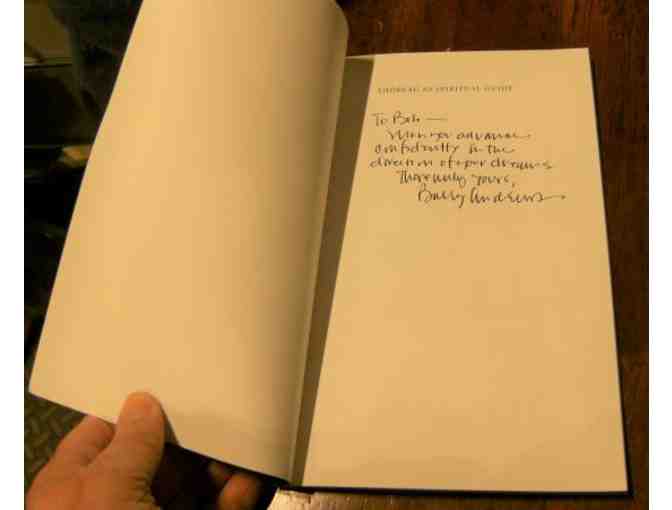 THOREAU AS SPIRITUAL GUIDE
To Bob —
May you advance
confidently in the
direction of your dreams
Thoreauly yours,
Barry Andrews